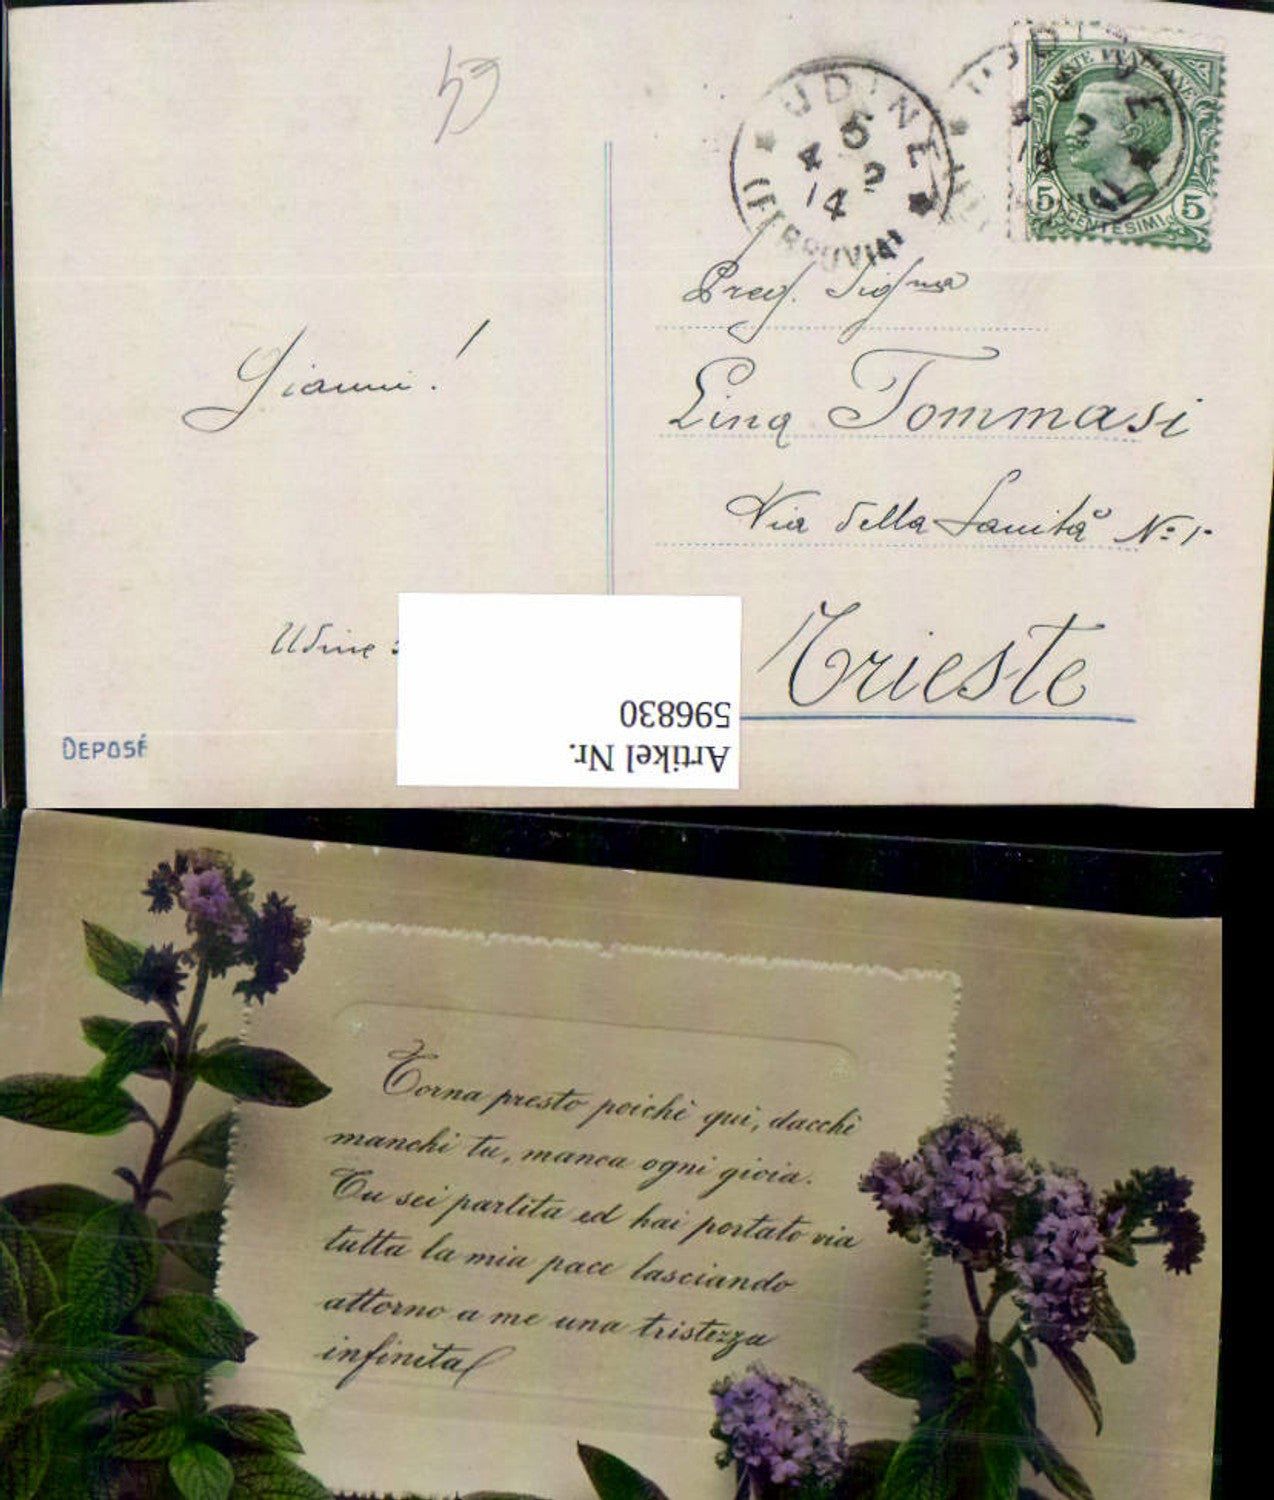 53
UDINE
5 2
14
(FERROVIA)
POSTE ITALIANE
5 CENTESIMI 5
Preg. Sig.na
Gianni!
Lina Tommasi
Via della Sanità No 1
Udine
Trieste
DEPOSÉ
Artikel Nr.
596830
Torna presto poichè qui, dacchè
manchi tu, manca ogni gioia.
Tu sei partita ed hai portato via
tutta la mia pace lasciando
attorno a me una tristezza
infinita